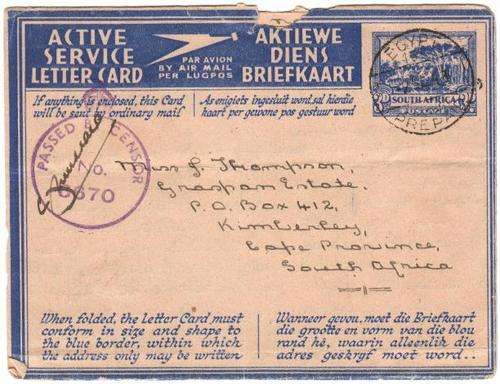 ACTIVE
SERVICE
LETTER CARD
PAR AVION
BY AIR MAIL
PER LUGPOS
AKTIEWE
DIENS
BRIEFKAART
EGYPT
PREPAID
SOUTH AFRICA
If anything is enclosed, this Card
will be sent by ordinary mail
As enigiets ingesluit word, sal hierdie
kaart per gewone pos gestuur word
PASSED BY CENSOR
No.
6670
Miss J. Thompson,
Graspan Estate.
P.O. Box 412,
Kimberley,
Cape Province,
South Africa
When folded, the letter Card must
conform in size and shape to
the blue border, within which
the address only may be written
Wanneer gevou, moet die Briefkaart
die grootte en vorm van die blou
rand hê, waarin alleenlik die
adres geskryf moet word..